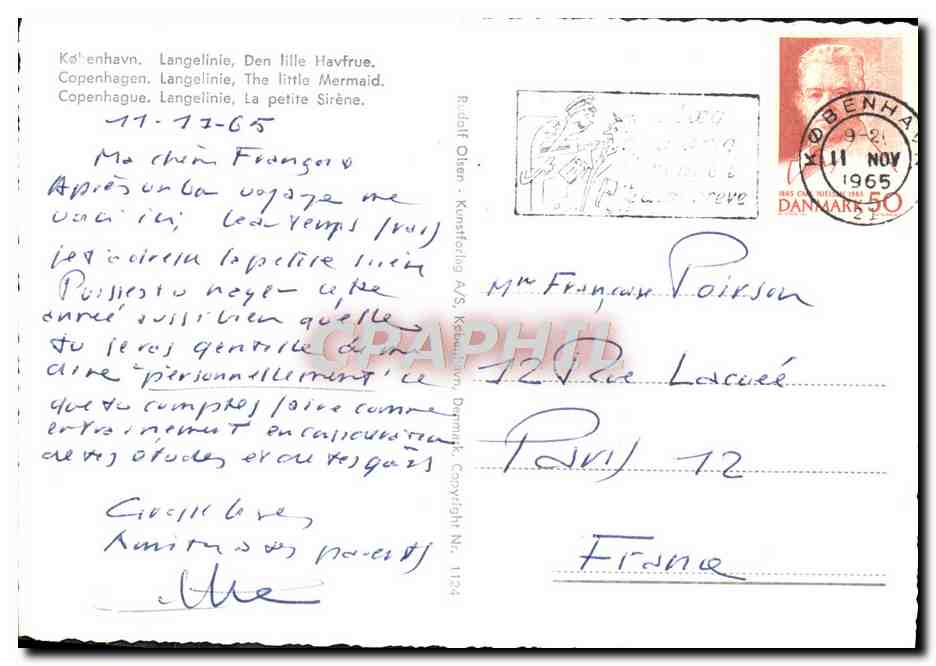 København. Langelinie, Den lille Havfrue.
Copenhagen. Langelinie, The little Mermaid.
Copenhague. Langelinie, La petite Sirène.
11-11-65
Ma chère Françoise
Après un bon voyage me
voici ici, beau temps frais
la petite sirène
Puisses tu nager cette
année aussi bien qu'elle.
tu seras gentille de me
dire "personnellement" ce
que tu comptes faire comme
entrainement en considération
de tes études et de tes goûts
Grosses bises
Amitiés à tes parents
Rudolf Olsen - Kunstforlag A/S, København, Denmark. Copyright Nr. 1124
KØBENHAVN
9-21
11 NOV
1965
1865 CARL NIELSEN 1965
DANMARK 50
Mlle Françoise Poirson
12 Rue Lacuée
Paris 12
France
CPAPHIL